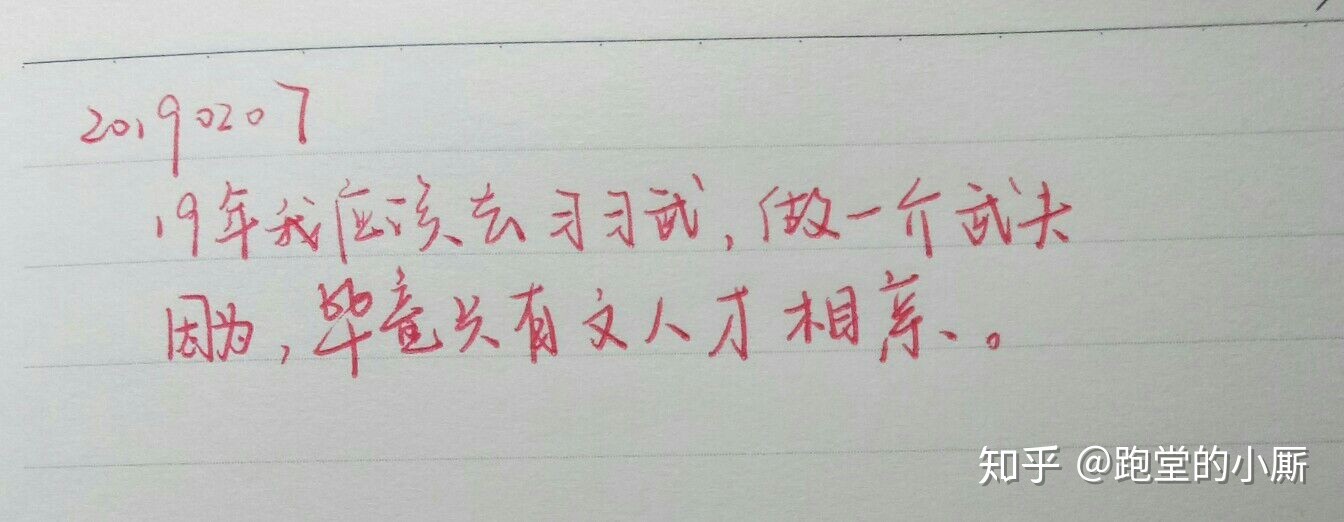 20190207
19年我应该去习习武,做一介武夫
因为,毕竟只有文人才相亲、。
知乎 @跑堂的小厮